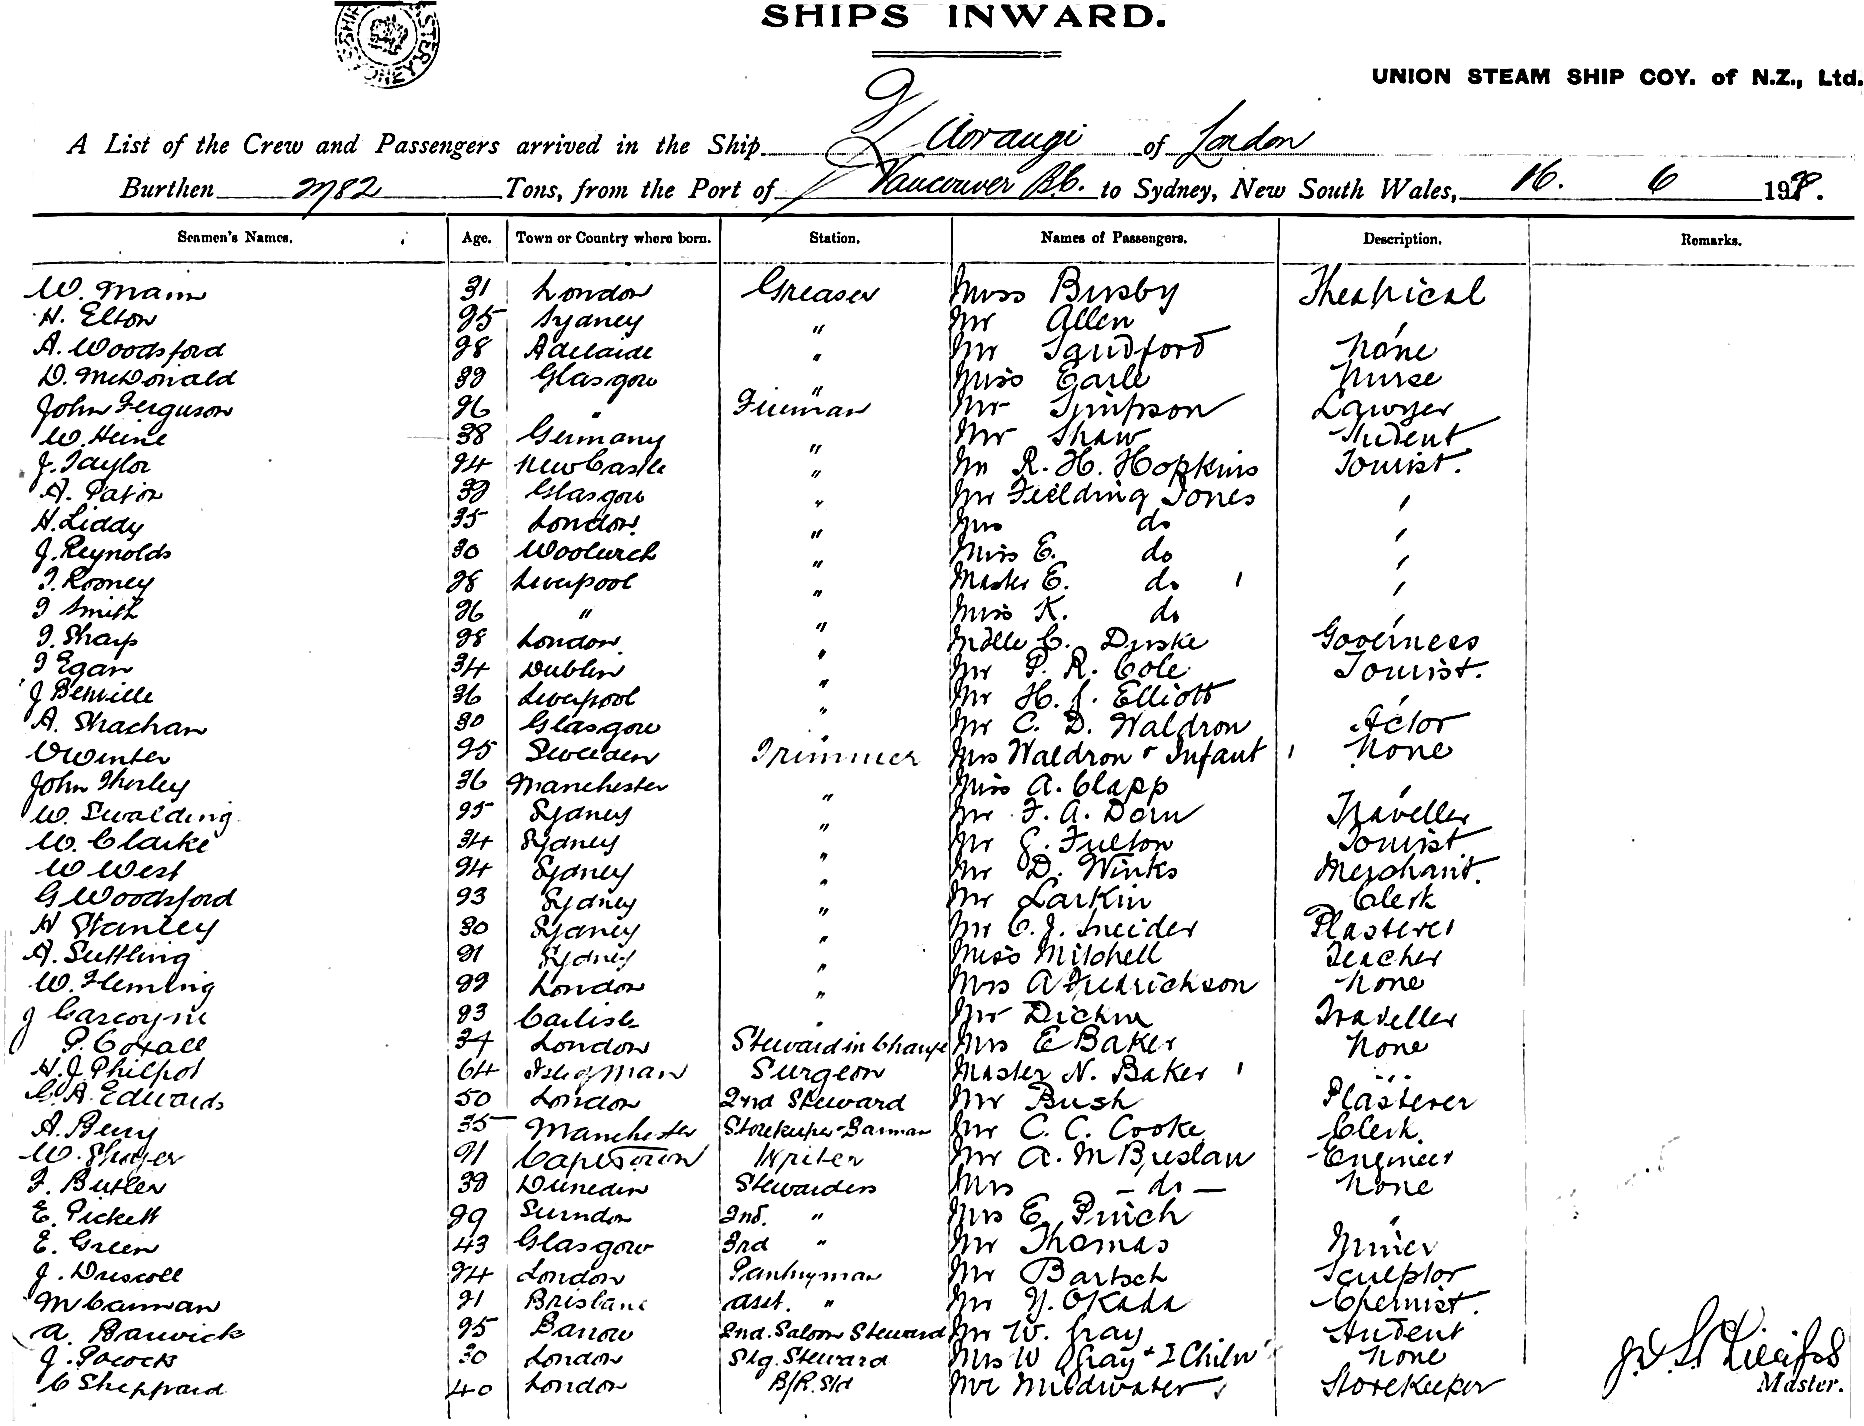 SHIPS INWARD.
UNION STEAM SHIP COY. of N.Z., Ltd.
A List of the Crew and Passengers arrived in the Ship Aorangi of London
Burthen 2782 Tons, from the Port of Vancouver B.C. to Sydney, New South Wales, 16. 6 19
Seamen's Names. Age. Town or Country where born. Station. Names of Passengers. Description. Remarks.
W. Mann 31 London Greaser Miss Busby Theatrical
H. Elton 25 Sydney " Mr Allen "
A. Woodsford 28 Adelaide " Mr Sandford None
D. McDonald Glasgow " Miss Earle Nurse
John Ferguson 26 " Fireman Mr Simpson Lawyer
W. Heine 38 Germany " Mr Shaw Student
J. Taylor 24 Newcastle " Mr R. H. Hopkins Tourist.
A. Paton Glasgow " Mr Fielding Jones "
H. Liddy 35 London. " Mrs do "
J. Reynolds 30 Woolwich " Miss E. do "
T. Rooney 28 Liverpool " Master E. do 1 "
T Smith 26 " " Miss K. do "
T. Sharp 28 London. " Mdlle C. Governess
T Egan 34 Dublin " Mr P. R. Cole Tourist.
J 36 Liverpool " Mr H. J. Elliott "
A. Strachan 30 Glasgow " Mr C. D. Waldron Actor
Winter 25 Sweeden Trimmer Mrs Waldron & Infant 1 None
John Thorley 36 Manchester " Miss A. Clapp "
W. Swalding 25 Sydney " Mr F. A. Dorn Traveller
W. Clarke 34 Sydney " Mr G. Fulton Tourist
W West 24 Sydney " Mr D. Winks Merchant.
G Woodsford 23 Sydney " Mr Larkin Clerk
H Stanley 30 Sydney " Mr C. J. Sneider Plasterer
A. Suttling 21 Sydney " Miss Mitchell Teacher
W. Fleming 22 London " Mrs A Fredrickson None
J Gascoyne 23 Carlisle " Mr Traveller
P. Coxall 34 London Steward in Charge Mrs E Baker None
H. J. Philpot 64 Isle of Man Surgeon Master N. Baker 1 "
C. A. Edwards 50 London 2nd Steward Mr Bush Plasterer
A. Berry 35 Manchester Storekeeper & Barman Mr C. C. Cooke Clerk.
W. 21 Capetown Writer Mr A. McBreslan Engineer
F. Butler Dunedin Stewardess Mrs — do — None
E. Pickett 29 Swindon 2nd. " Mrs E. Pinch "
E. Green 43 Glasgow 3rd " Mr Thomas Miner
J. Driscoll 24 London Pantryman Mr Bartsch Sculptor
M Cannan 21 Brisbane asst. " Mr Y. Okada Chemist.
A. Barwick 25 Barrow 2nd. Saloon Steward Mr W. Gray Student
J. Pocock 30 London Stg. Steward Mrs W Gray & 2 Childn None
C Sheppard 40 London B/R. Std Mr Mildwater Storekeeper
Master.